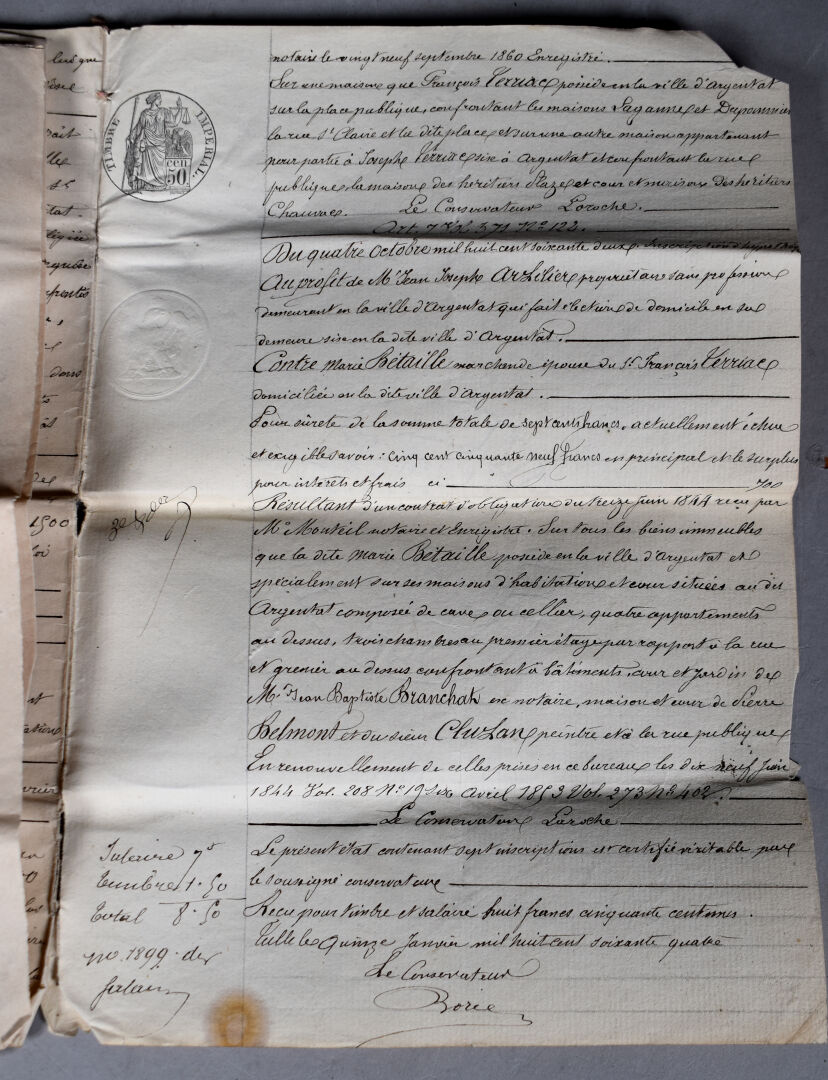 notaire le vingt neuf septembre 1860 Enregistré.
Sur une maison que François Verriac possède en la ville d'Argentat
sur la place publique, confrontant les maisons Laganne et Duponnier
la rue St Claire et la dite place et sur une autre maison appartenant
pour partie à Joseph Verriac sise à Argentat et confrontant la rue
publique la maison des heritiers Plaze et cour et maison des heritiers
Chauvac. Le Conservateur Laroche.
Art. 7 Vol. 371 No 122.
Du quatre Octobre mil huit cent soixante deux. Inscription d'hypothèque
Au profit de Mr Jean Joseph Arzilier propriétaire sans profession
demeurant en la ville d'Argentat qui fait élection de domicile en sa
demeure sise en la dite ville d'Argentat.
Contre Marie Betaille marchande épouse du Sr François Verriac
domiciliée en la dite ville d'Argentat.
Pour sûreté de la somme totale de sept cents francs, actuellement échue
et exigible savoir: cinq cent cinquante neuf francs en principal et le surplus
pour intérêts et frais ci 700
Résultant d'un contrat d'obligation du treize juin 1844 reçu par
Me Monteil notaire et Enregistré. Sur tous les biens immeubles
que la dite Marie Betaille possède en la ville d'Argentat et
spécialement sur ses maisons d'habitation et cour situées au dit
Argentat composée de cave ou cellier, quatre appartements
au dessus, trois chambres au premier étage par rapport à la rue
et grenier au dessus confrontant à bâtiments, cour et jardin de
Mr Jean Baptiste Branchat ex notaire, maison et cour de Pierre
Belmont et du sieur Cluzan peintre et à la rue publique
En renouvellement de celles prises en ce bureau les dix neuf Juin
1844 Vol. 208 No Avril 1853 Vol. 273 No 402.
Le Conservateur Laroche
Le présent état contenant sept inscriptions est certifié véritable par
le soussigné conservateur
Reçu pour timbre et salaire huit francs cinquante centimes.
Tulle le Quinze Janvier mil huit cent soixante quatre
Le Conservateur
Borie
TIMBRE IMPÉRIAL
50 cen
Salaire 7
Timbre 1.50
Total 8.50
no. 1899 de
Salaire
1500